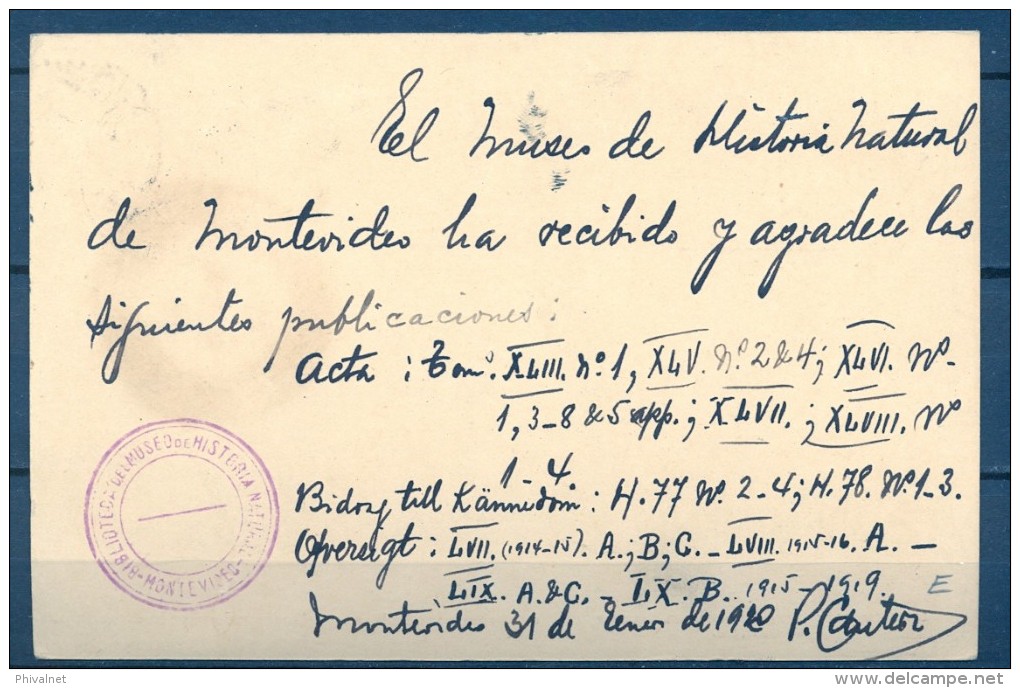 El Museo de Historia Natural
de Montevideo ha recibido y agradece las
siguientes publicaciones:
Acta: Tom. XLIII. nº 1, XLV. Nº. 2 & 4; XLVI. Nº
1, 3-8 & 5 app.; XLVII.; XLVIII. Nº
1-4.
Bidrag till Kännedom: H. 77 Nº. 2-4; H. 78. Nº. 1-3.
Ofversigt: LVII. (1914-15). A.; B; C. - LVIII. 1915-16. A. -
LIX. A. & C. - LX. B. 1915-1919.
E
Montevideo 31 de Enero de 1920 P.
BIBLIOTECA DEL MUSEO DE HISTORIA NATURAL
-MONTEVIDEO-
Phivalnet
www.delcampe.net